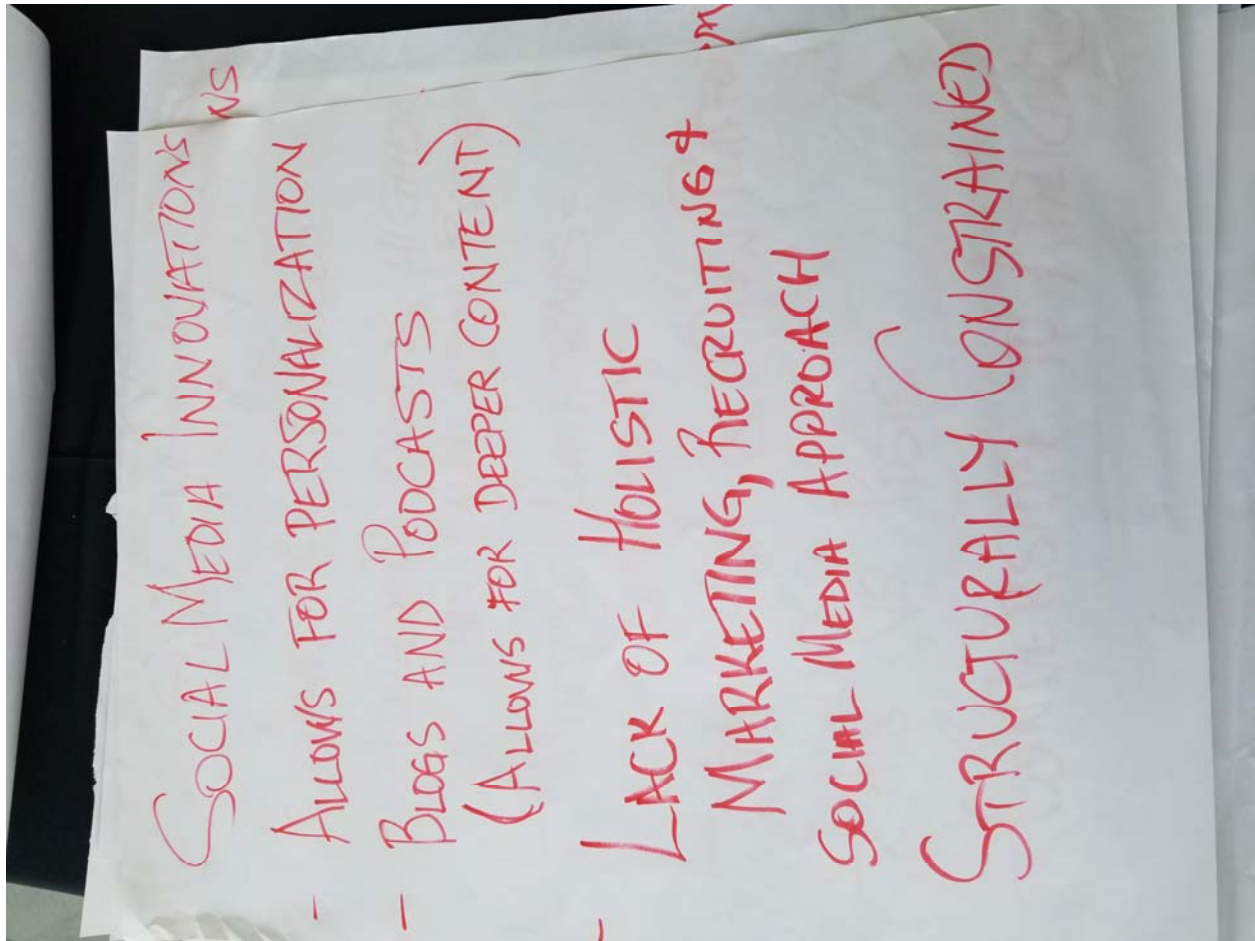 SOCIAL MEDIA INNOVATIONS
- ALLOWS FOR PERSONALIZATION
- BLOGS AND PODCASTS
(ALLOWS FOR DEEPER CONTENT)
- LACK OF HOLISTIC
MARKETING, RECRUITING &
SOCIAL MEDIA APPROACH
STRUCTURALLY CONSTRAINED
NS